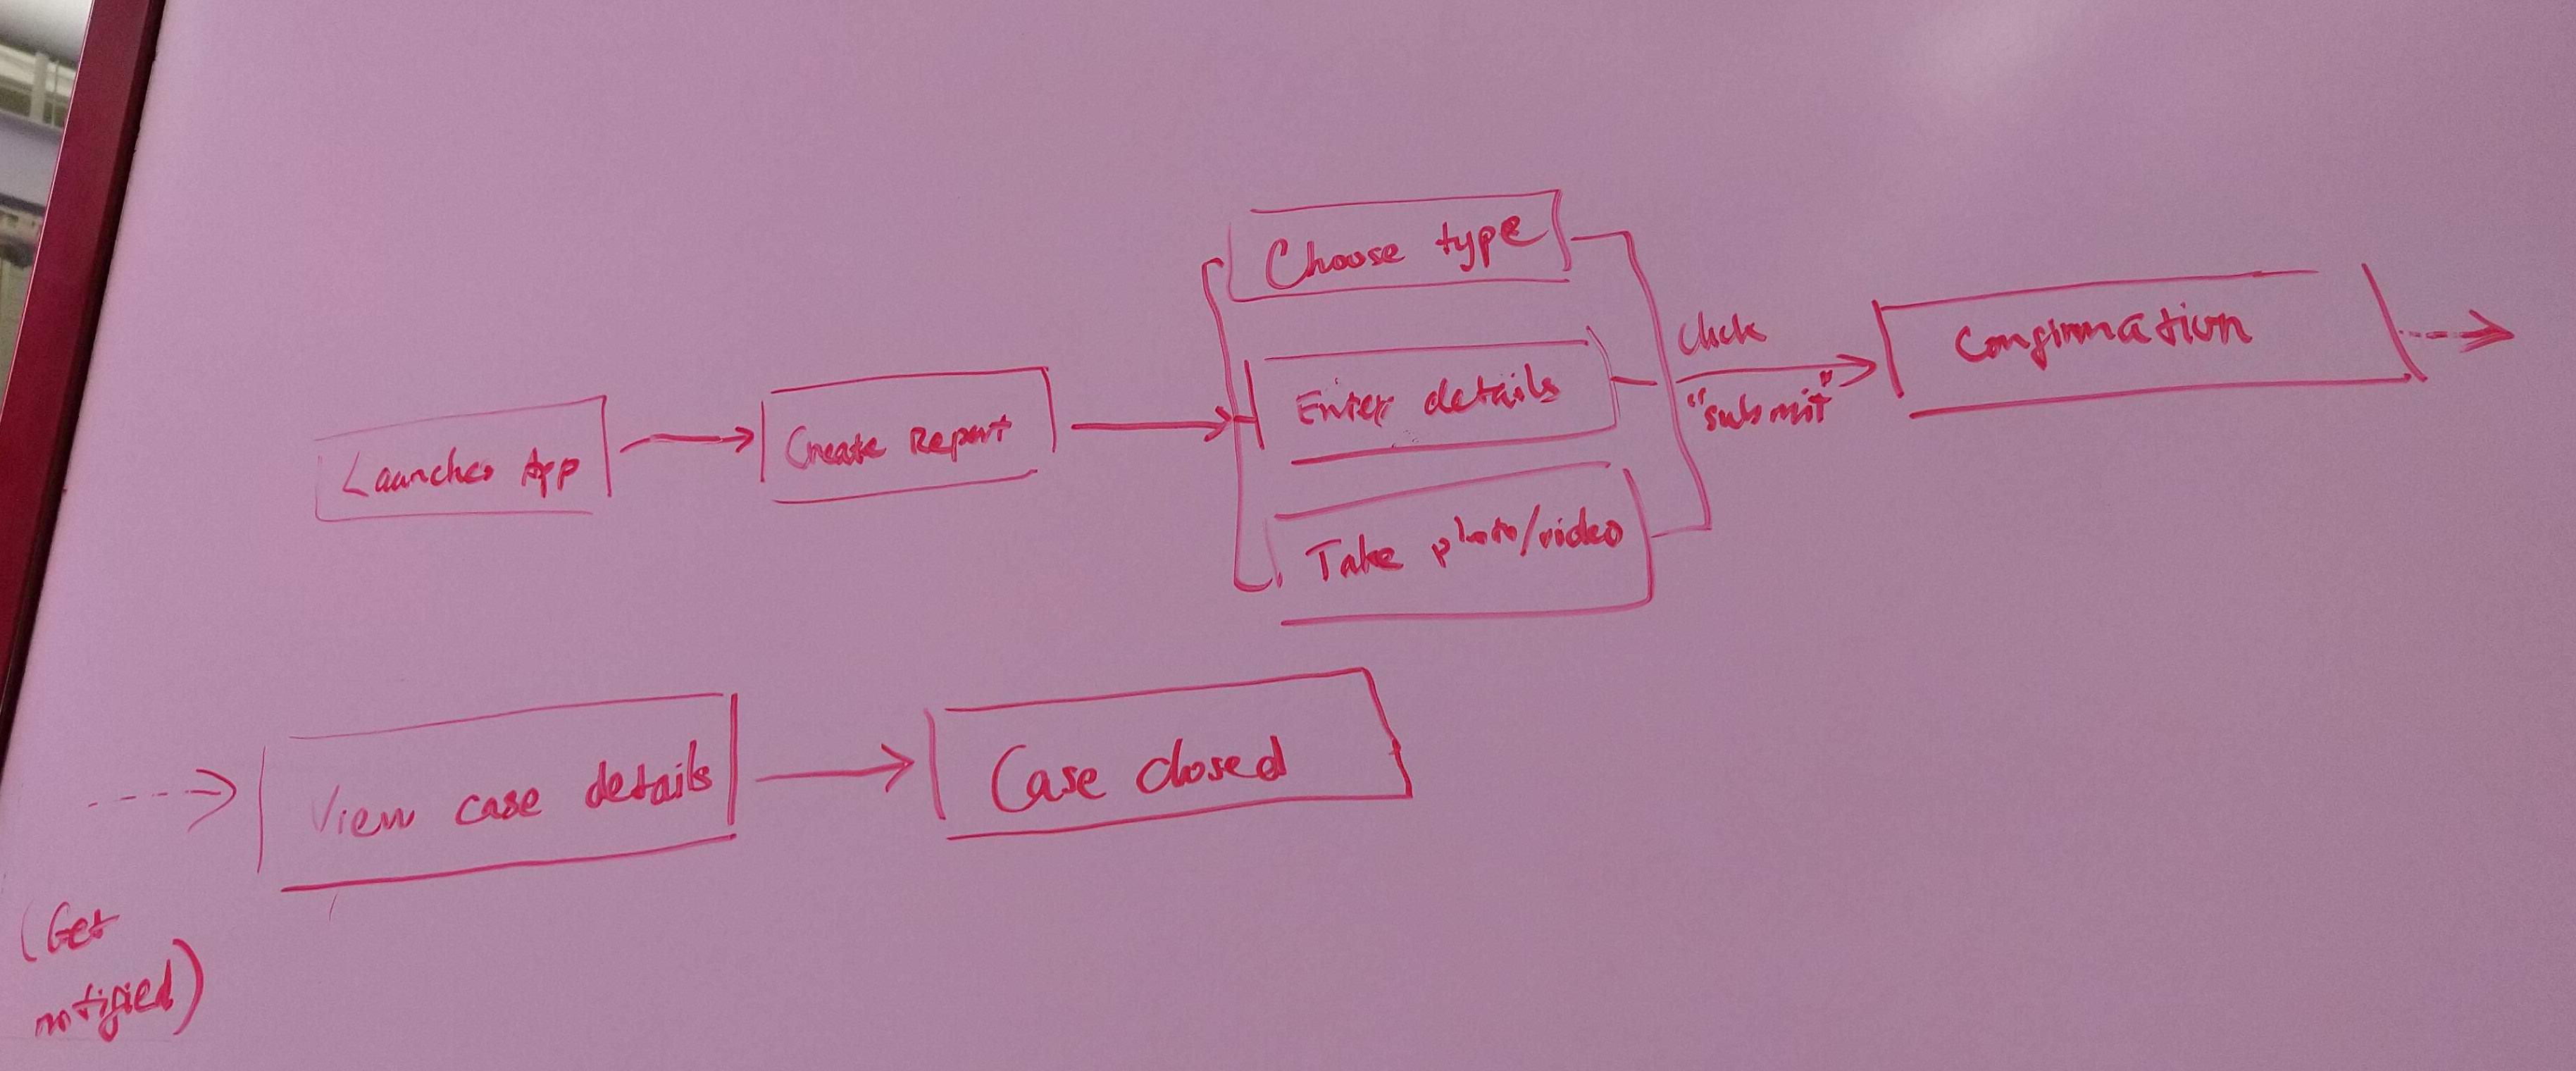 Launches App
Create Report
Choose type
Enter details
Take photo/video
click
"submit"
Confirmation
View case details
Case closed
(Get
notified)